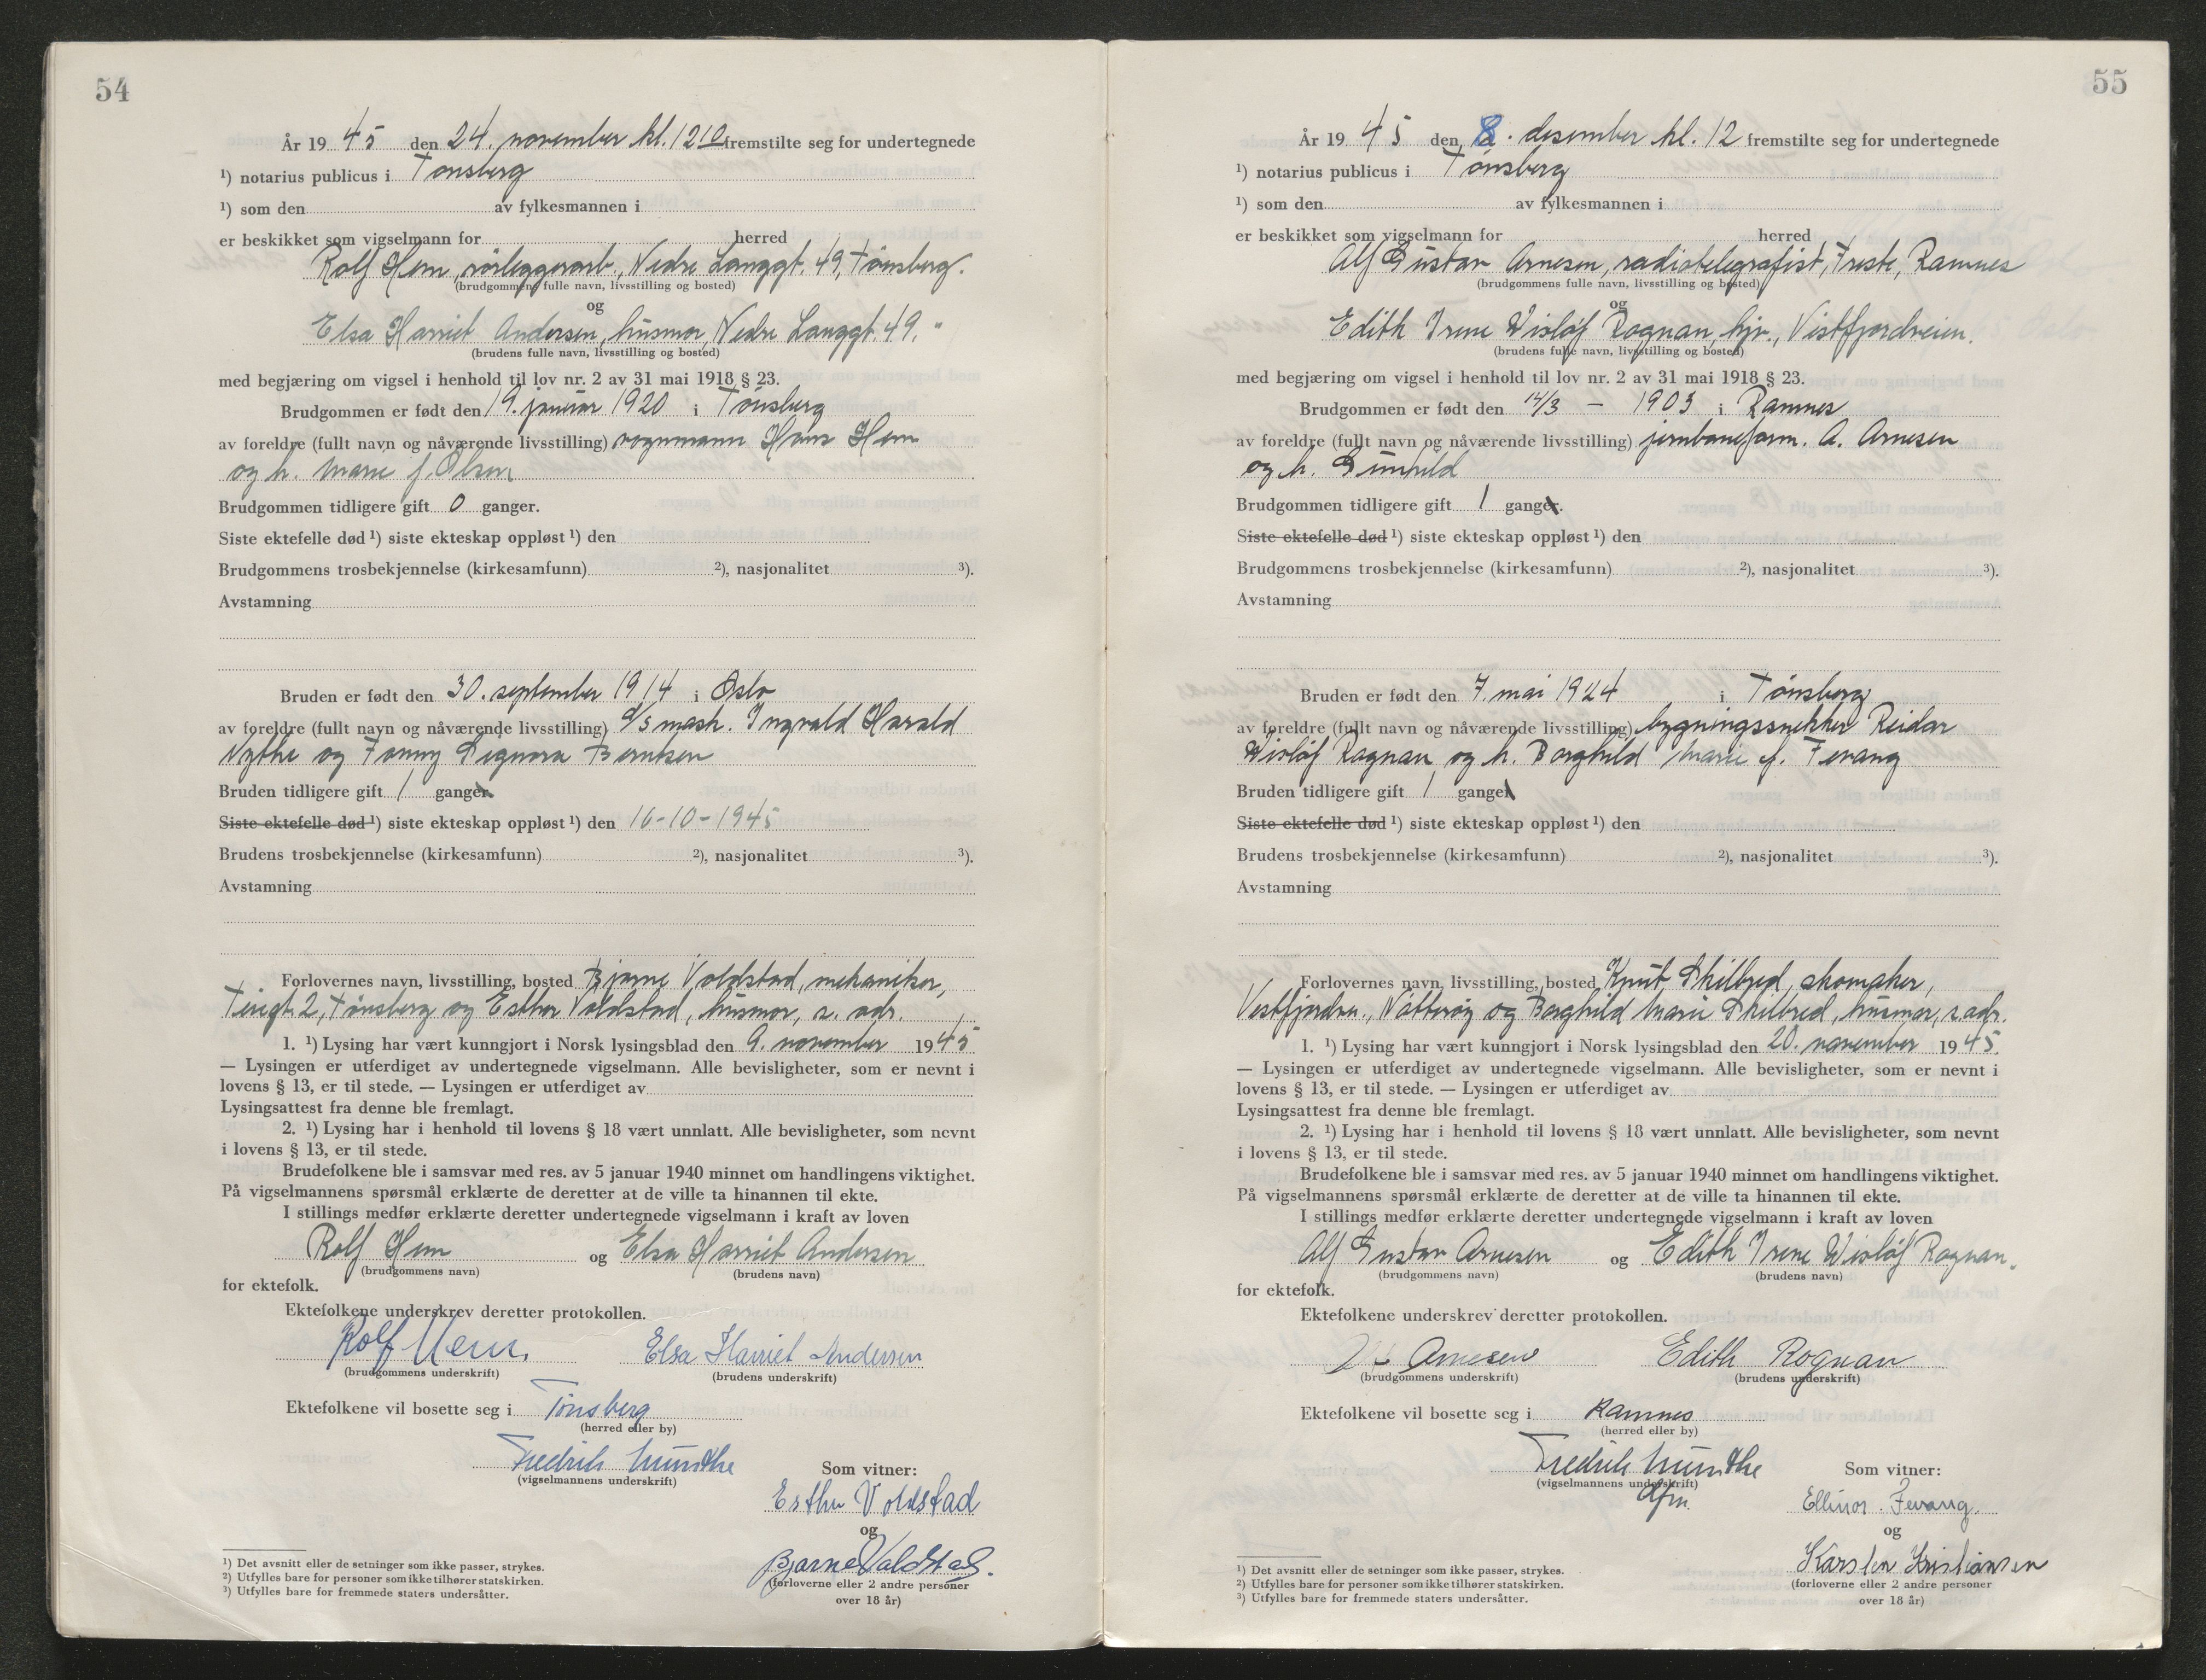 54
År 19 45 den 24. november kl. 12 10 fremstilte seg for undertegnede
¹) notarius publicus i Tønsberg
¹) som den av fylkesmannen i
er beskikket som vigselmann for herred
Rolf Hem, rørleggerarb., Nedre Langgt. 49, Tønsberg.
(brudgommens fulle navn, livsstilling og bosted)
og
Elsa Harriet Andersen, husmor, Nedre Langgt. 49. "
(brudens fulle navn, livsstilling og bosted)
med begjæring om vigsel i henhold til lov nr. 2 av 31 mai 1918 § 23.
Brudgommen er født den 19. januar 1920 i Tønsberg
av foreldre (fullt navn og nåværende livsstilling) vognmann Hans Hem
og h. Marie f. Olsen
Brudgommen tidligere gift 0 ganger.
Siste ektefelle død ¹) siste ekteskap oppløst ¹) den
Brudgommens trosbekjennelse (kirkesamfunn) ²), nasjonalitet ³).
Avstamning
Bruden er født den 30. september 1914 i Oslo
av foreldre (fullt navn og nåværende livsstilling) d/s mask. Ingvald Harald
Nythe og Fanny Signora Berntsen
Bruden tidligere gift 1 ganger.
Siste ektefelle død ¹) siste ekteskap oppløst ¹) den 16-10-1945
Brudens trosbekjennelse (kirkesamfunn) ²), nasjonalitet ³).
Avstamning
Forlovernes navn, livsstilling, bosted Bjarne Voldstad, mekaniker,
2, Tønsberg og Esther Voldstad, husmor, s. adr.
1. ¹) Lysing har vært kunngjort i Norsk lysingsblad den 9. november 1945
— Lysingen er utferdiget av undertegnede vigselmann. Alle bevisligheter, som er nevnt i
lovens § 13, er til stede. — Lysingen er utferdiget av
Lysingsattest fra denne ble fremlagt.
2. ¹) Lysing har i henhold til lovens § 18 vært unnlatt. Alle bevisligheter, som nevnt
i lovens § 13, er til stede.
Brudefolkene ble i samsvar med res. av 5 januar 1940 minnet om handlingens viktighet.
På vigselmannens spørsmål erklærte de deretter at de ville ta hinannen til ekte.
I stillings medfør erklærte deretter undertegnede vigselmann i kraft av loven
Rolf Hem og Elsa Harriet Andersen
(brudgommens navn) (brudens navn)
for ektefolk.
Ektefolkene underskrev deretter protokollen.
Rolf Hem. Elsa Harriet Andersen
(brudgommens underskrift) (brudens underskrift)
Ektefolkene vil bosette seg i Tønsberg
(herred eller by)
Fredrik Munthe
(vigselmannens underskrift)
Som vitner:
Esther Voldstad
og
Bjarne Voldstad.
(forloverne eller 2 andre personer
over 18 år)
¹) Det avsnitt eller de setninger som ikke passer, strykes.
²) Utfylles bare for personer som ikke tilhører statskirken.
³) Utfylles bare for fremmede staters undersåtter.
55
År 19 45 den 8. desember kl. 12 fremstilte seg for undertegnede
¹) notarius publicus i Tønsberg
¹) som den av fylkesmannen i
er beskikket som vigselmann for herred
Alf Gustav Arnesen, radiotelegrafist, Freste, Ramnes
(brudgommens fulle navn, livsstilling og bosted)
og
Edith Irene Wisløf Rognan, hjv., Vestfjordveien.
(brudens fulle navn, livsstilling og bosted)
med begjæring om vigsel i henhold til lov nr. 2 av 31 mai 1918 § 23.
Brudgommen er født den 14/3 - 1903 i Ramnes
av foreldre (fullt navn og nåværende livsstilling) jernbaneform. A. Arnesen
og h. Gunhild
Brudgommen tidligere gift 1 ganger.
Siste ektefelle død ¹) siste ekteskap oppløst ¹) den
Brudgommens trosbekjennelse (kirkesamfunn) ²), nasjonalitet ³).
Avstamning
Bruden er født den 7. mai 1924 i Tønsberg
av foreldre (fullt navn og nåværende livsstilling) bygningssnekker Reidar
Wisløf Rognan og h. Borghild Marie f. Fevang
Bruden tidligere gift 1 ganger
Siste ektefelle død ¹) siste ekteskap oppløst ¹) den
Brudens trosbekjennelse (kirkesamfunn) ²), nasjonalitet ³).
Avstamning
Forlovernes navn, livsstilling, bosted Knut Skilbred, skomaker,
Vestfjordv., Nøtterøy og Borghild Marie Skilbred, husmor, s. adr.
1. ¹) Lysing har vært kunngjort i Norsk lysingsblad den 20. november 1945.
— Lysingen er utferdiget av undertegnede vigselmann. Alle bevisligheter, som er nevnt i
lovens § 13, er til stede. — Lysingen er utferdiget av
Lysingsattest fra denne ble fremlagt.
2. ¹) Lysing har i henhold til lovens § 18 vært unnlatt. Alle bevisligheter, som nevnt
i lovens § 13, er til stede.
Brudefolkene ble i samsvar med res. av 5 januar 1940 minnet om handlingens viktighet.
På vigselmannens spørsmål erklærte de deretter at de ville ta hinannen til ekte.
I stillings medfør erklærte deretter undertegnede vigselmann i kraft av loven
Alf Gustav Arnesen og Edith Irene Wisløf Rognan.
(brudgommens navn) (brudens navn)
for ektefolk.
Ektefolkene underskrev deretter protokollen.
Arnesen Edith Rognan
(brudgommens underskrift) (brudens underskrift)
Ektefolkene vil bosette seg i Ramnes
(herred eller by)
Fredrik Munthe
(vigselmannens underskrift)
Som vitner:
Ellinor Fevang.
og
Karsten Kristiansen
(forloverne eller 2 andre personer
over 18 år)
¹) Det avsnitt eller de setninger som ikke passer, strykes.
²) Utfylles bare for personer som ikke tilhører statskirken.
³) Utfylles bare for fremmede staters undersåtter.